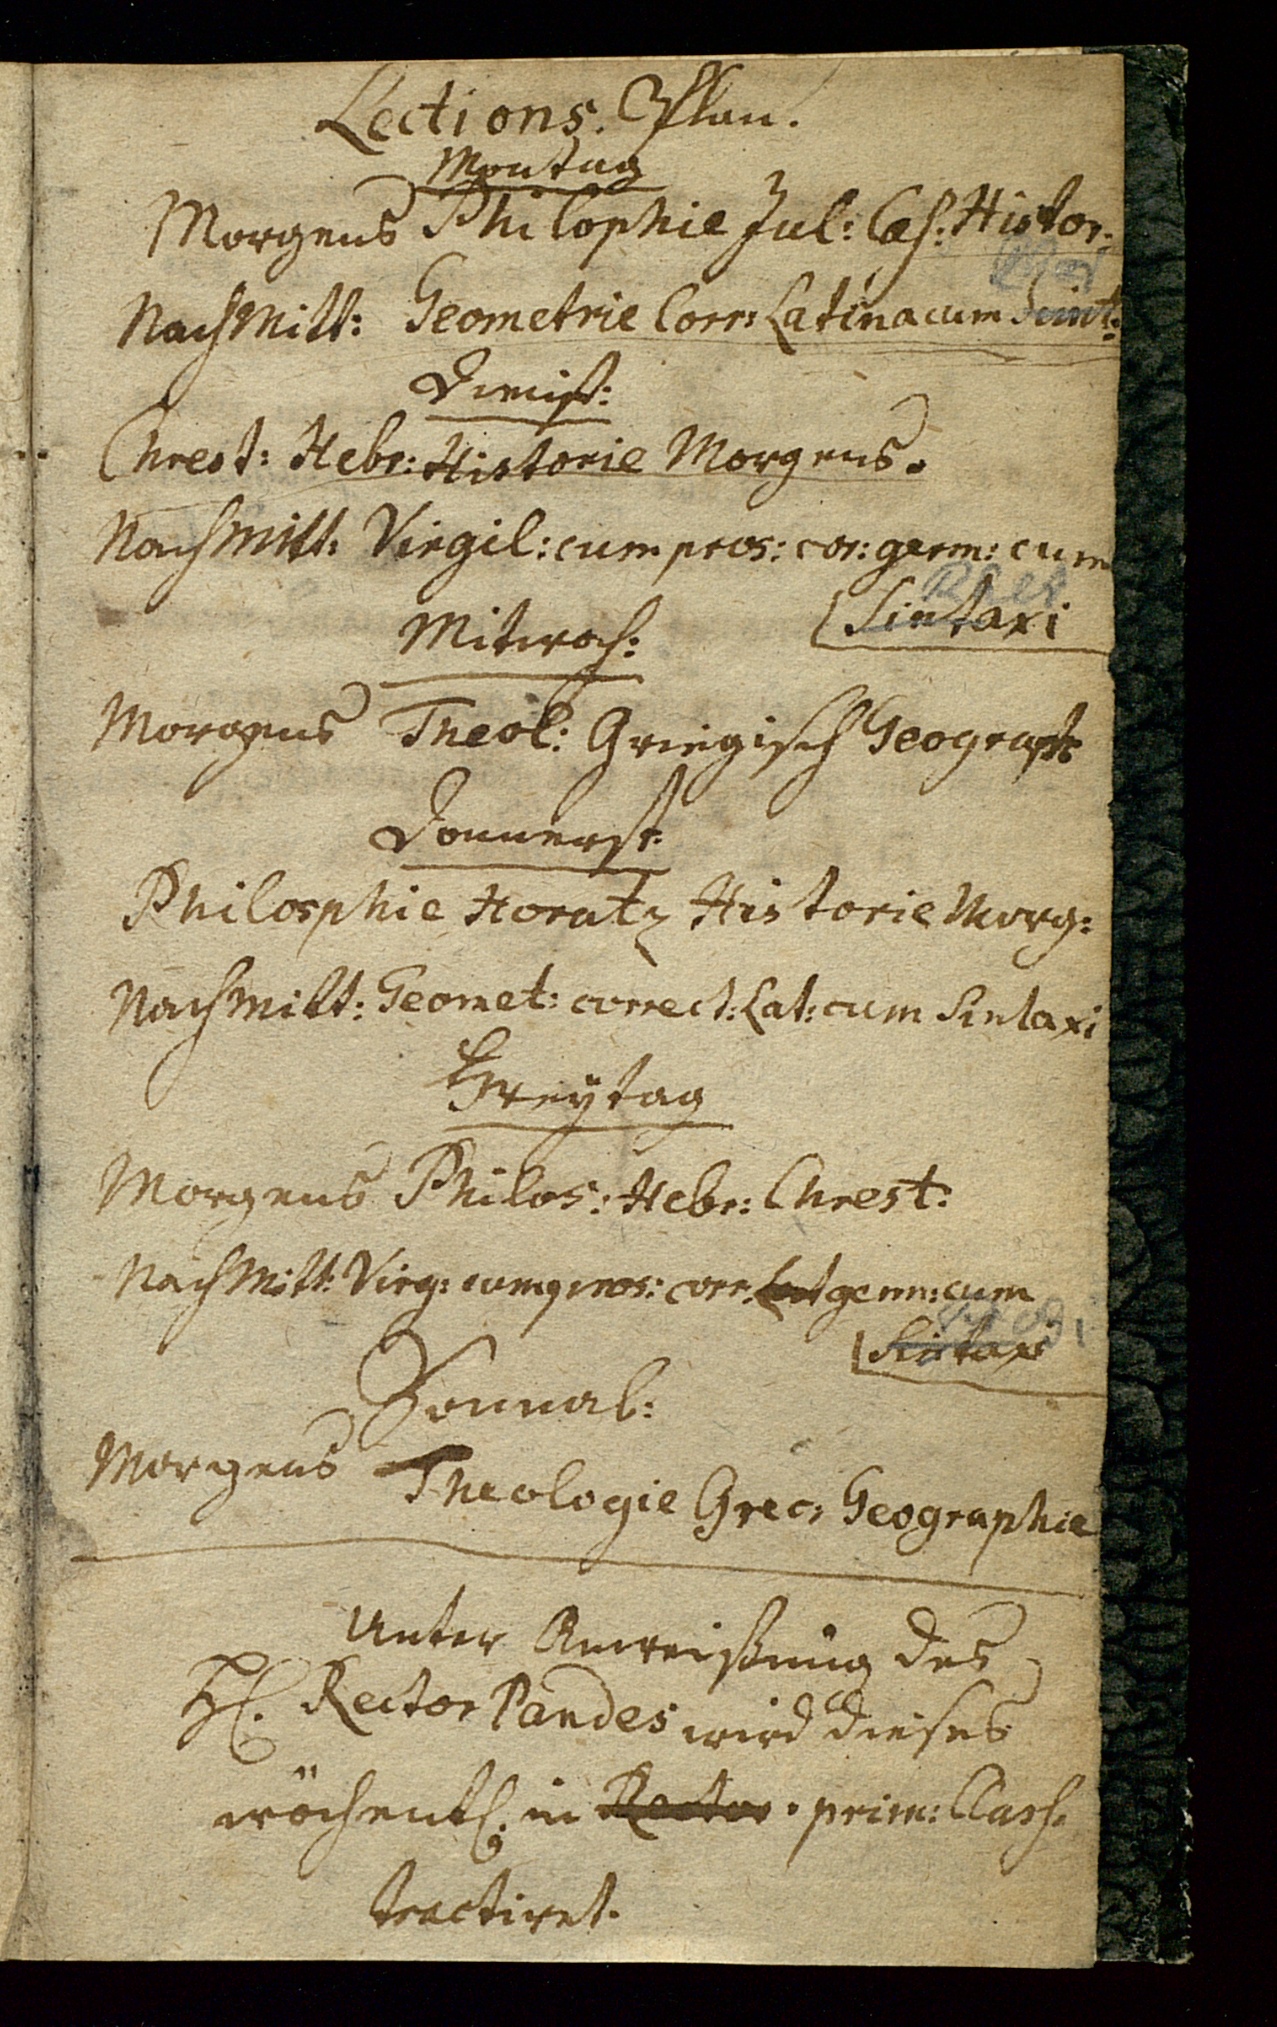 Lections. Plan.
Montag
Morgens Philophie Jul: Cæs: Histor:
NachMitt: Geometrie Corr: Latina cum Sint:
Dinnst:
Chrest: Hebr: Historie Morgens.
NachMitt: Virgil: cum pros: cor: germ: cum
Sintaxi
Mitwoch:
Morgens Theol: Griegisch Geograph
Donnerst:
Philosphie Horatz Historie Morg:
NachMitt: Geomet: correct: Lat: cum Sintaxi
Freytag
Morgens Philos: Hebr: Chrest:
NachMitt: Virg: cum pros: corr. Lat germ: cum
Sintaxi
Sonnab:
Morgens Theologie Grec: Geographie
Unter Anweißung des
H. Rector Pandes wird dieses
wöchentl. in Rector. prim: Class.
tractiret.